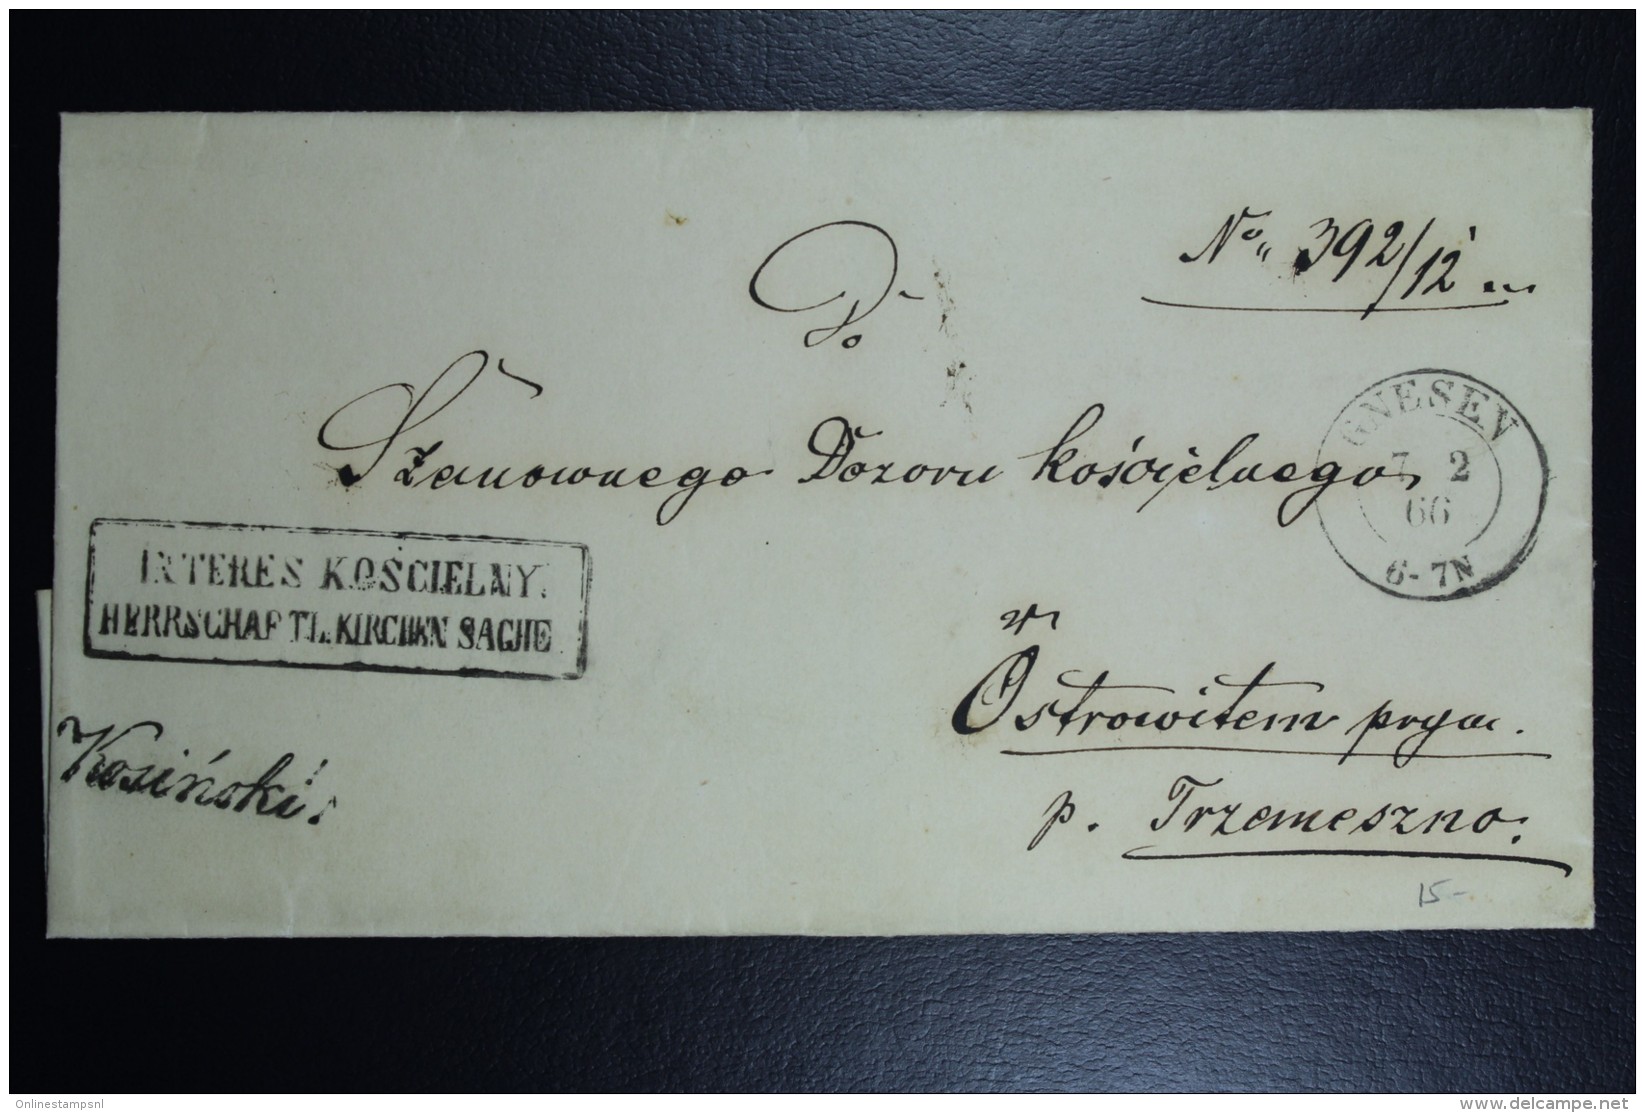 No 392/12
Do
Szanownego Dozoru kościelnego
GNESEN
7 2
66
6-7N
INTERES KOŚCIELNY.
HERRSCHAFTL. KIRCHEN SACHE
w
Kosiński
Ostrowitem prym.
p. Trzemeszno.
15-
Onlinestampsnl
www.delcampe.net